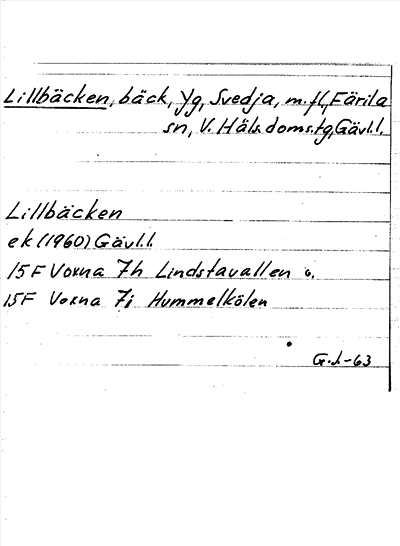 Lillbäcken, bäck, Yg, Svedja, m.fl, Färila
sn, V. Häls. doms.tg, Gävl.l.
Lillbäcken
ek (1960) Gävl.l.
15F Voxna 7h Lindstavallen o.
15F Voxna 7i Hummelkölen
G.J.-63